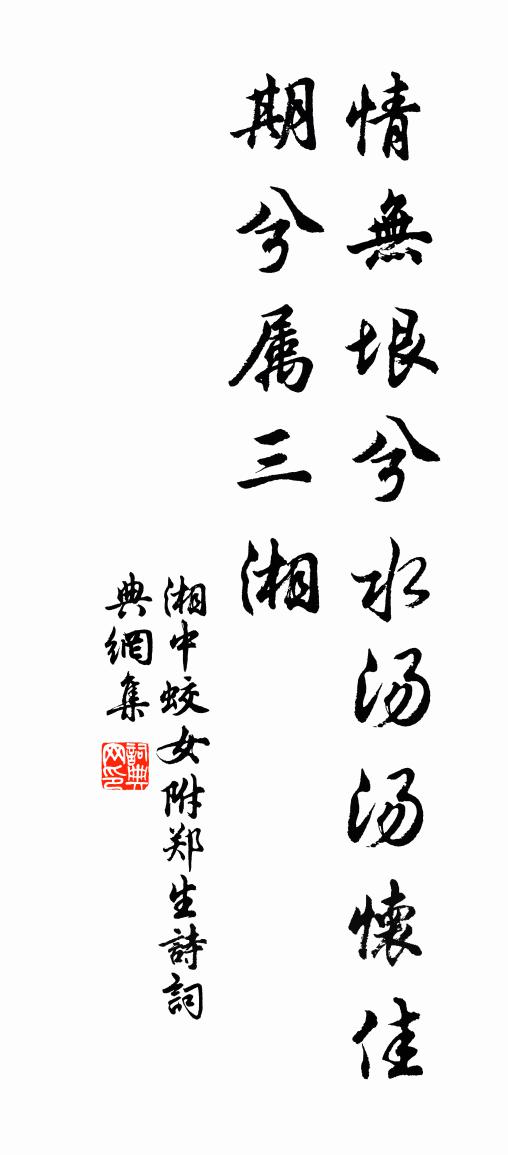 情無垠兮水汤汤懷佳
期兮属三湘
湘中蛟女附郑生詩詞
典網集
詞典网印